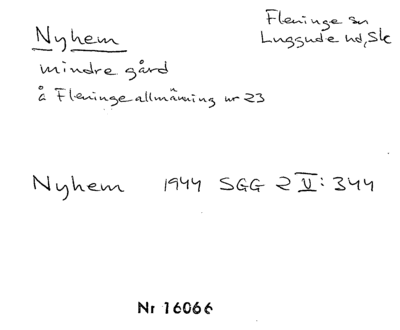 Nyhem
Fleninge sn
Luggude hd, Sk
mindre gård
å Fleninge allmänning nr 23
Nyhem 1944 SGG 2 V: 344
Nr 16066